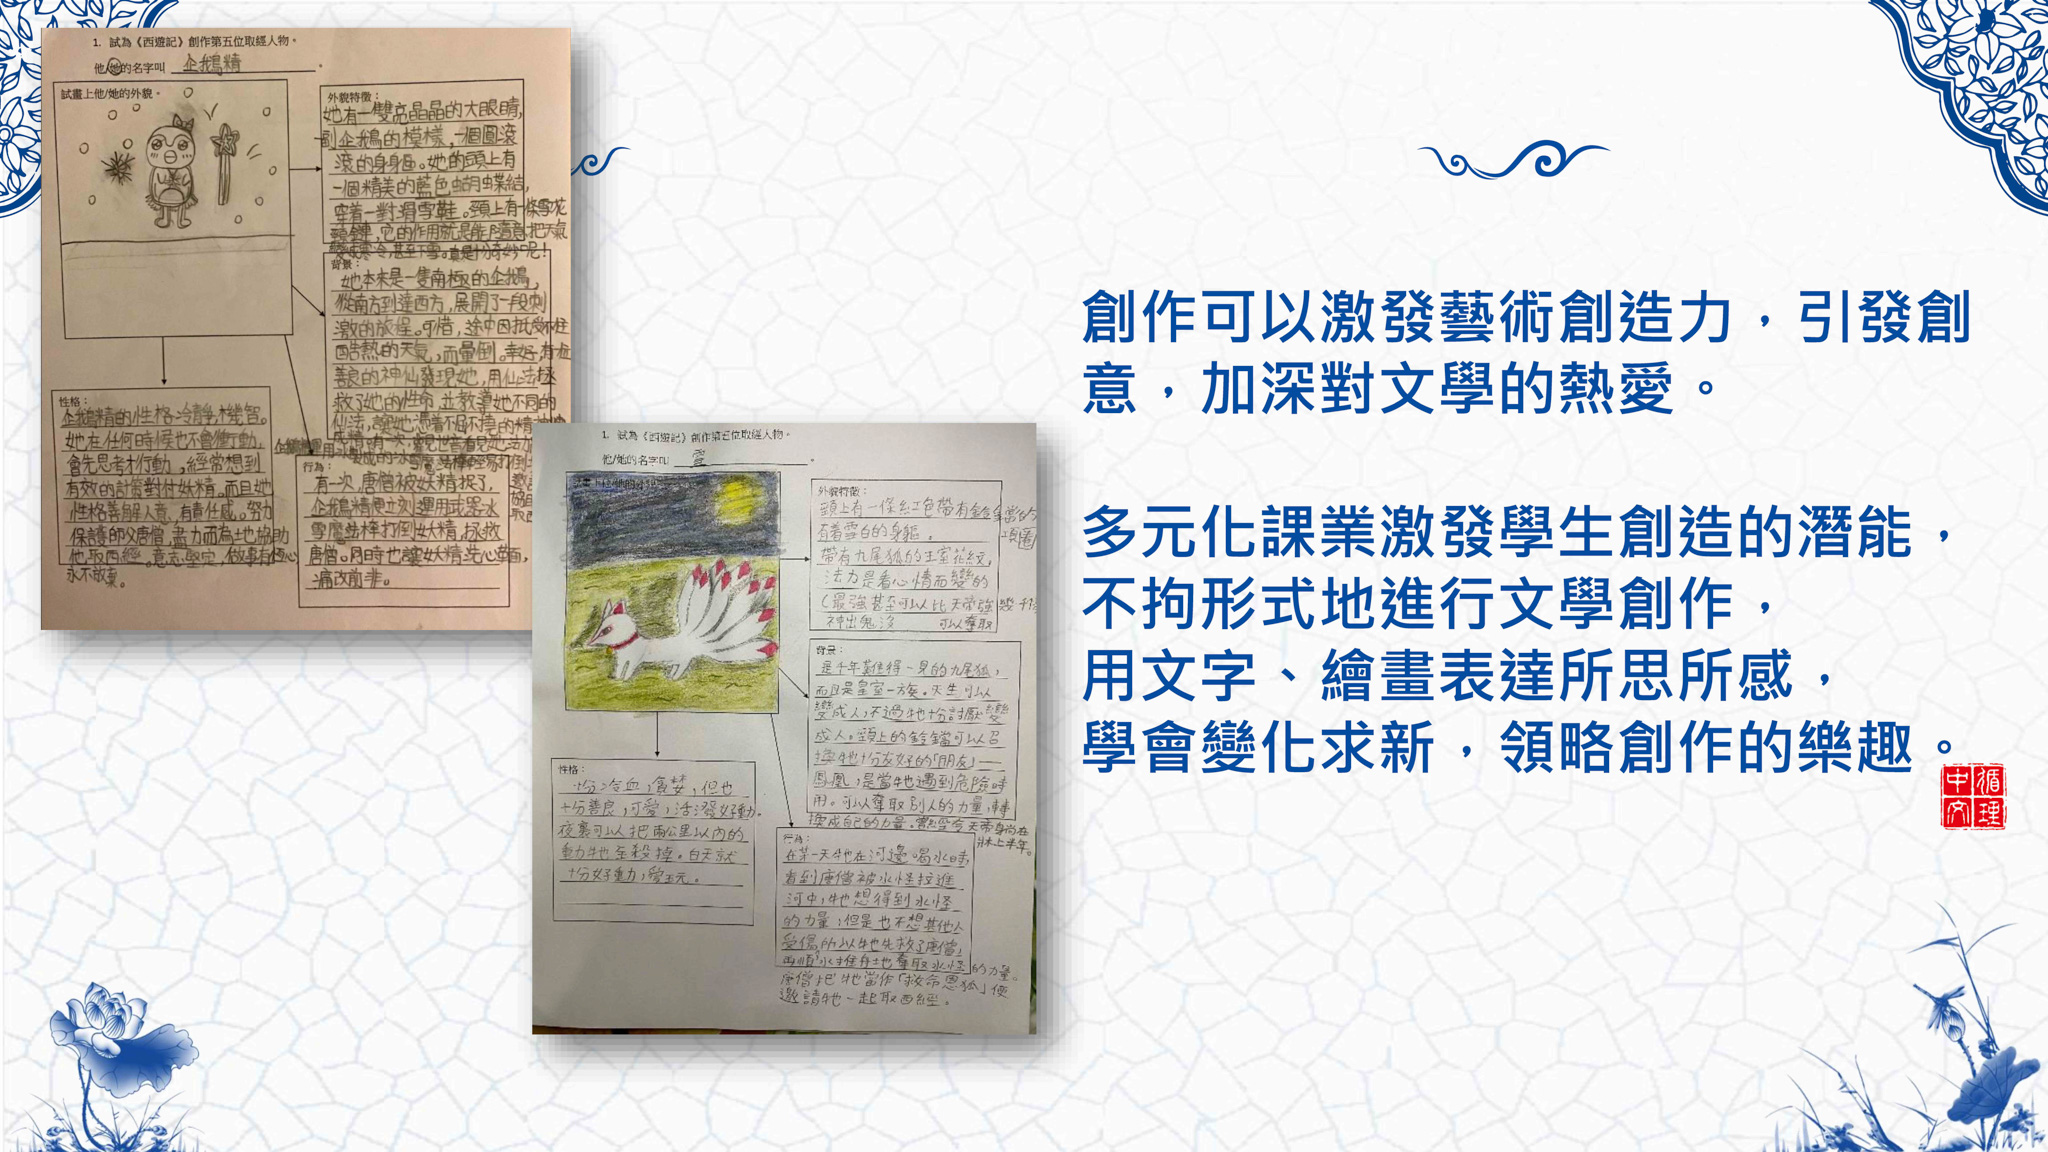 1. 試為《西遊記》創作第五位取經人物。
他/她的名字叫 企鵝精 。
試畫上他/她的外貌。
外貌特徵：
她有一雙亮晶晶的大眼睛，
一副企鵝的模樣，一個圓滾
滾的身軀。她的頭上有
一個精美的藍色蝴蝶結，
穿着一對滑雪鞋。頸上有一條雪花
頸鏈，它的作用就是能隨意把天氣
變成寒冷，甚至下雪。真是十分奇妙呢！
背景：
她本來是一隻南極的企鵝，
從南方到達西方，展開了一段刺
激的旅程。可惜，途中因抵受不住
酷熱的天氣，而暈倒。幸好，有位
善良的神仙發現她，用仙法拯
救了她的性命，並教導她不同的
仙法，讓她憑着不屈不撓的精神
性格：
企鵝精的性格冷靜，機智。
她在任何時候也不會衝動，
會先思考才行動，經常想到
有效的計策對付妖精。而且她
性格善解人意，有責任感。努力
保護師父唐僧，盡力而為地協助
他取西經。意志堅定，做事有恆心，
永不放棄。
行為：
有一次，唐僧被妖精捉了，
企鵝精便立刻運用武器冰
雪魔法棒打倒妖精，拯救
唐僧。同時也讓妖精洗心革面，
痛改前非。
1. 試為《西遊記》創作第五位取經人物。
他/她的名字叫 。
外貌特徵：
頭上有一條紅色帶有鈴鐺的
項圈
有着雪白的身軀。
帶有九尾狐的王室花紋，
法力是看心情而變的
（最強甚至可以比天帝強幾千倍
神出鬼沒 可以奪取
背景：
是千年難得一見的九尾狐，
而且是皇室一族。天生可以
變成人，不過牠十分討厭變
成人。頸上的鈴鐺可以召
換牠十分友好的「朋友」——
鳳凰，是當牠遇到危險時
用。可以奪取別人的力量，轉
換成自己的力量。曾經令天帝身尚在
牀上半年。
性格：
十分冷血，貪婪，但也
十分善良，可愛，活潑好動。
夜裏可以把兩公里以內的
動物全殺掉。白天就
十分好動，愛玩。
行為：
在某一天牠在河邊喝水時，
看到唐僧被水怪拉進
河中，牠想得到水怪
的力量，但是也不想其他人
受傷，所以牠先救了唐僧，
再順水推舟地奪取水怪的力量。
唐僧把牠當作「救命恩狐」便
邀請牠一起取西經。
創作可以激發藝術創造力，引發創
意，加深對文學的熱愛。
多元化課業激發學生創造的潛能，
不拘形式地進行文學創作，
用文字、繪畫表達所思所感，
學會變化求新，領略創作的樂趣。
循理
中文